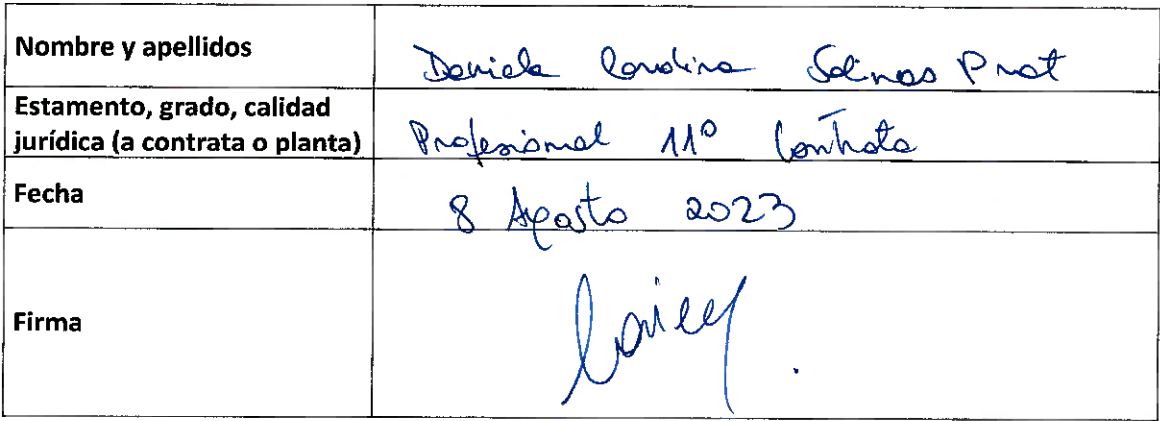 Nombre y apellidos Daniela Carolina Salinas Prat
Estamento, grado, calidad
jurídica (a contrata o planta) Profesional 11º Contrata
Fecha 8 Agosto 2023
Firma